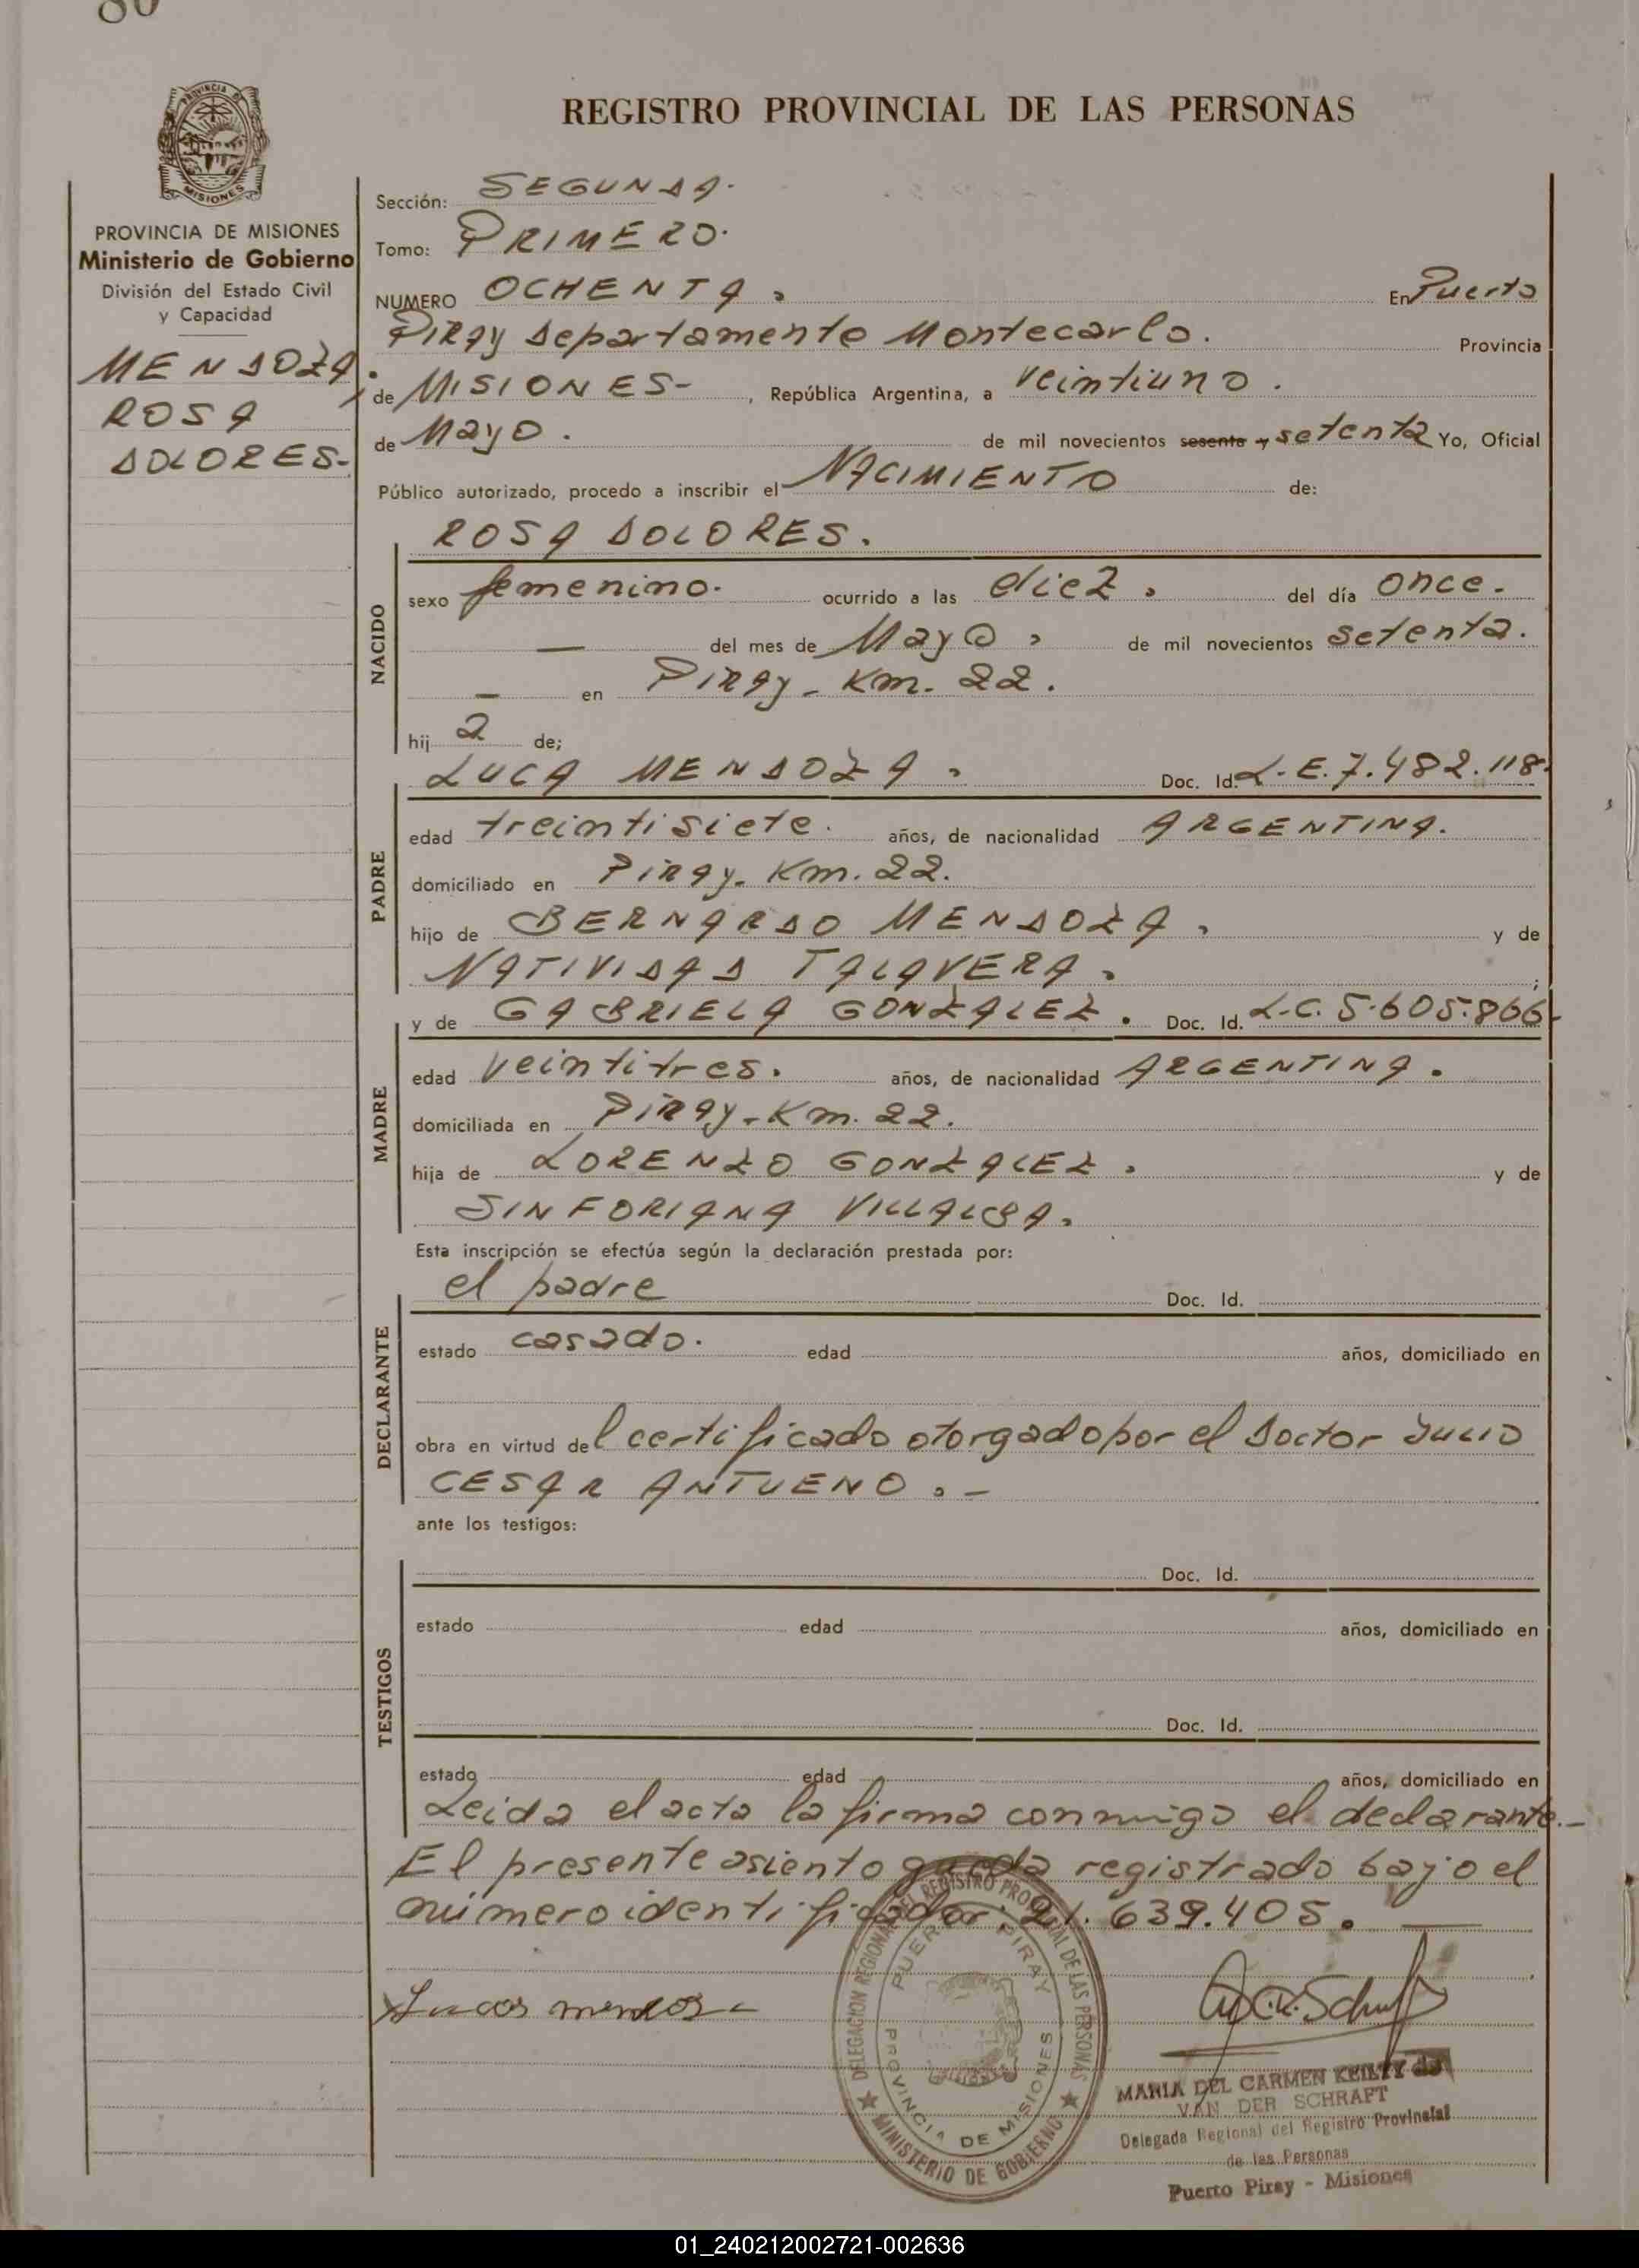 80
REGISTRO PROVINCIAL DE LAS PERSONAS
PROVINCIA DE MISIONES
PROVINCIA DE MISIONES
Ministerio de Gobierno
División del Estado Civil
y Capacidad
MENDOZA,
ROSA
DOLORES-
Sección: SEGUNDA.
Tomo: PRIMERO.
NUMERO OCHENTA. En Puerto
PIRAY Departamento Montecarlo. Provincia
de MISIONES-, República Argentina, a veintiuno.
de Mayo. de mil novecientos sesenta y setenta Yo, Oficial
Público autorizado, procedo a inscribir el NACIMIENTO de:
ROSA DOLORES.
NACIDO
sexo femenino. ocurrido a las diez. del día once.
— del mes de Mayo, de mil novecientos setenta.
— en PIRAY-Km. 22.
hij a de;
LUCA MENDOZA. Doc. Id. L.E.7.482.118.
PADRE
edad treintisiete. años, de nacionalidad ARGENTINA.
domiciliado en PIRAY-Km.22.
hijo de BERNARDO MENDOZA, y de
NATIVIDAD TALAVERA. ;
y de GABRIELA GONZALEZ. Doc. Id. L.C. 5.605.866-
MADRE
edad veintitres. años, de nacionalidad ARGENTINA.
domiciliada en PIRAY-Km. 22.
hija de LORENZO GONZALEZ. y de
SINFORIANA VILLALBA.
Esta inscripción se efectúa según la declaración prestada por:
el padre Doc. Id.
DECLARANTE
estado casado. edad años, domiciliado en
obra en virtud del certificado otorgado por el Doctor JULIO
CESAR ANTUENO.-
ante los testigos:
Doc. Id.
TESTIGOS
estado edad años, domiciliado en
Doc. Id.
estado edad años, domiciliado en
Leida el acta la firma conmigo el declarante.-
El presente asiento queda registrado bajo el
número identificador: 21.639.405.
Lucas mendosa
DELEGACION REGIONAL DEL REGISTRO PROVINCIAL DE LAS PERSONAS
PUERTO PIRAY
PROVINCIA DE MISIONES
MINISTERIO DE GOBIERNO
MARIA DEL CARMEN KEILTY de
VAN DER SCHRAFT
Delegada Regional del Registro Provincial
de las Personas
Puerto Piray - Misiones
01_240212002721-002636